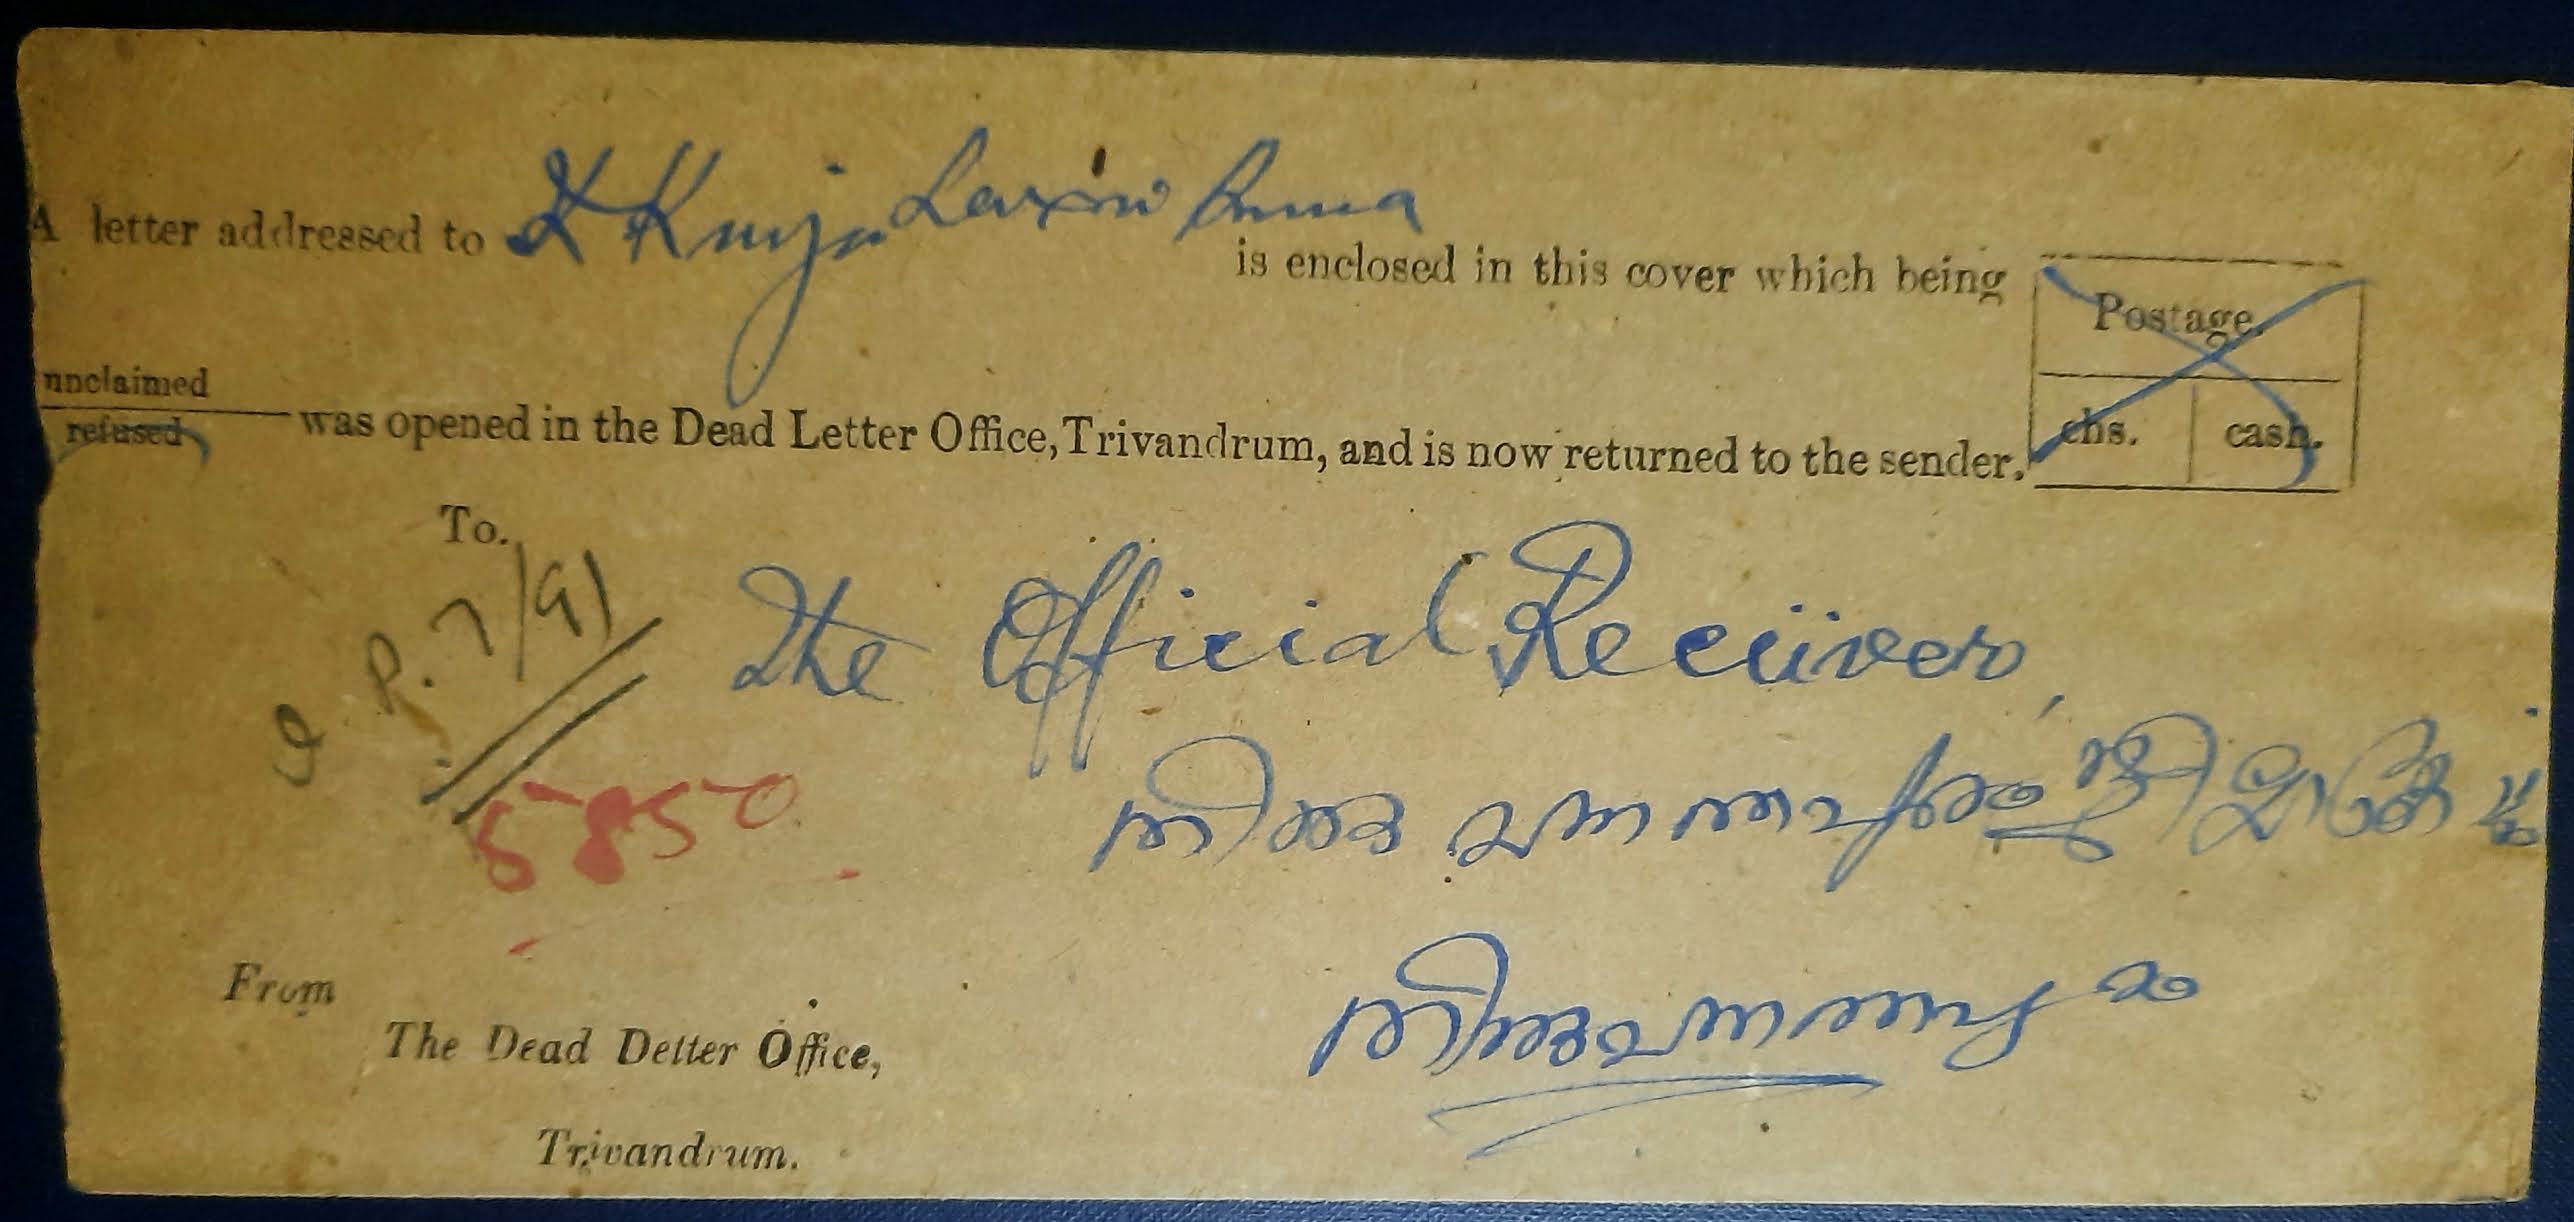 A letter addressed to K Kunju Laxmi Amma
is enclosed in this cover which being
Postage.
unclaimed
refused
was opened in the Dead Letter Office, Trivandrum, and is now returned to the sender.
chs. cash.
To.
P. 7/91
The Official Receiver,
തിരുവനന്തപുരം
5850
തിരുവനന്തപുരം
From
The Dead Detter Office,
Trivandrum.